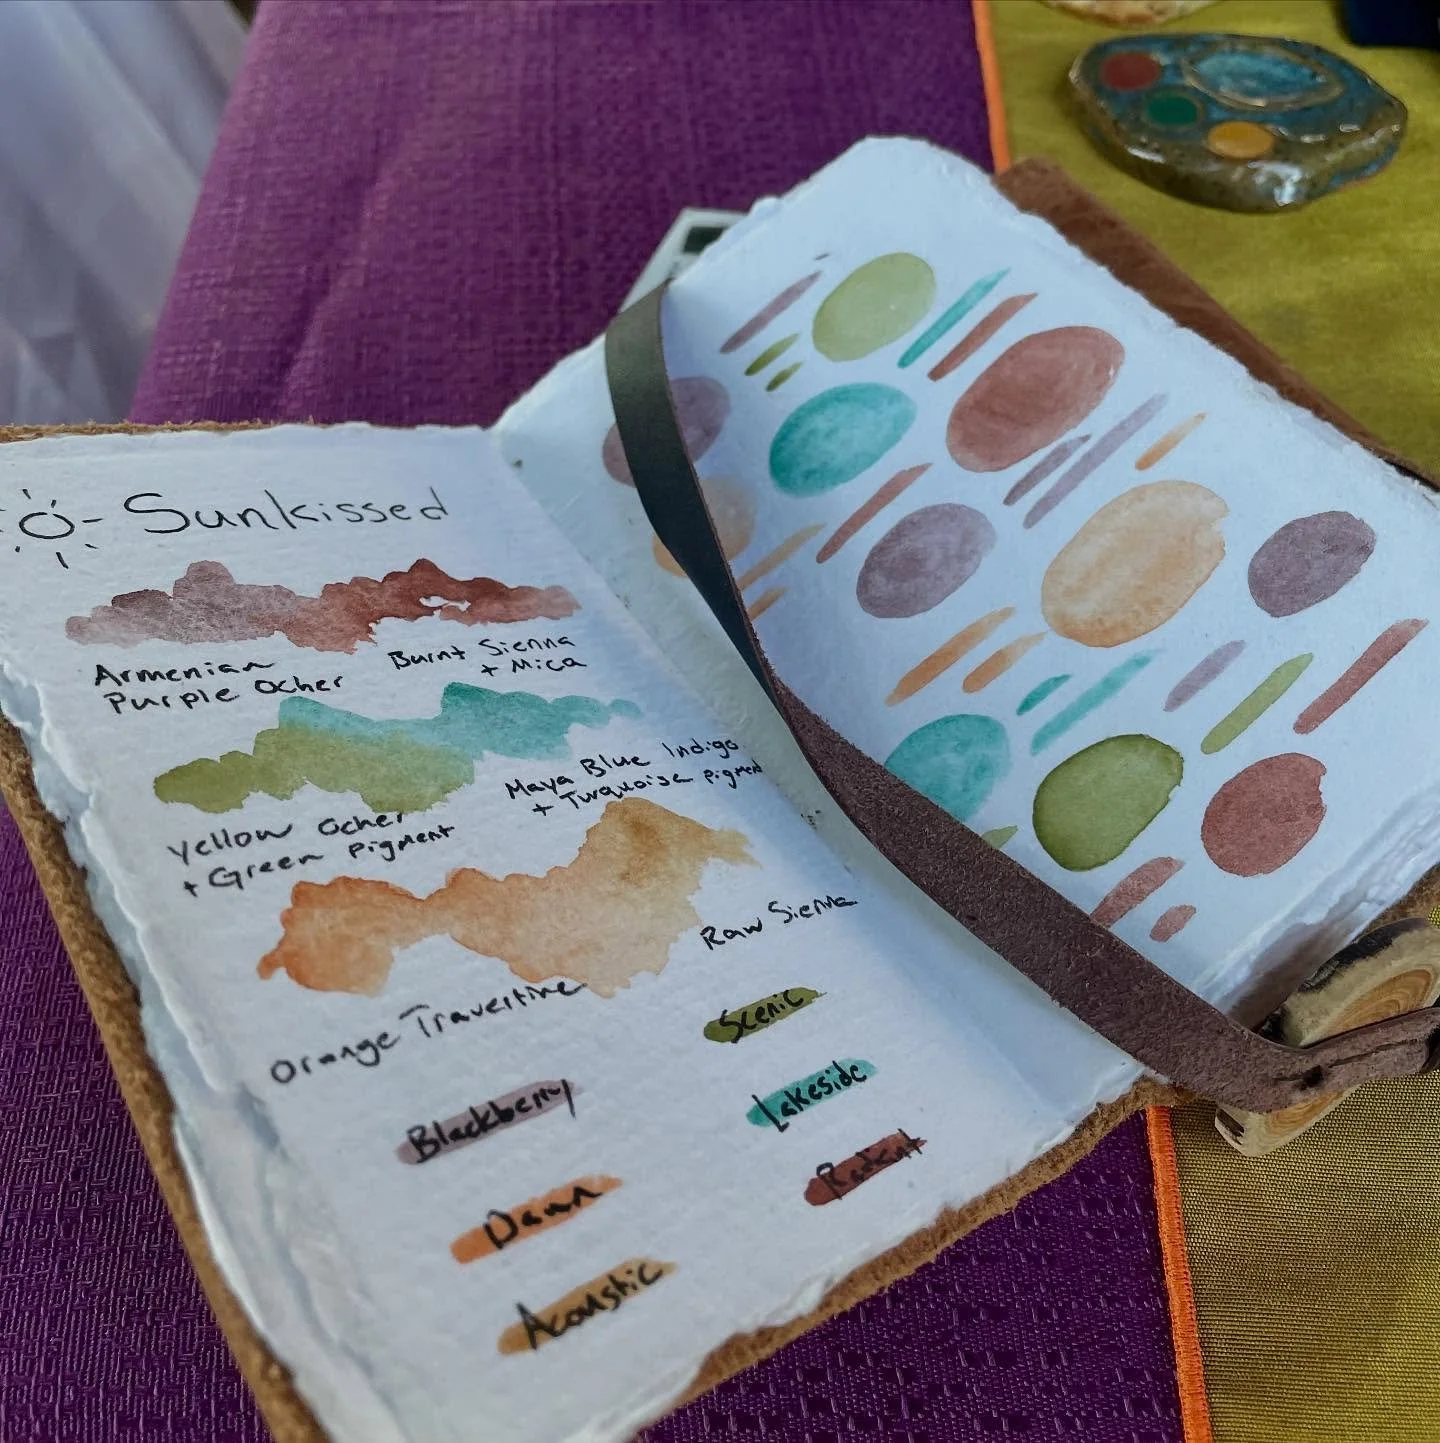 Sunkissed
Armenian
Purple Ocher
Burnt Sienna
+ Mica
Yellow Ocher
+ Green Pigment
Maya Blue Indigo
+ Turquoise pigment
Orange Travertine
Raw Sienna
Scenic
Blackberry
Lakeside
Dawn
Radiant
Acoustic